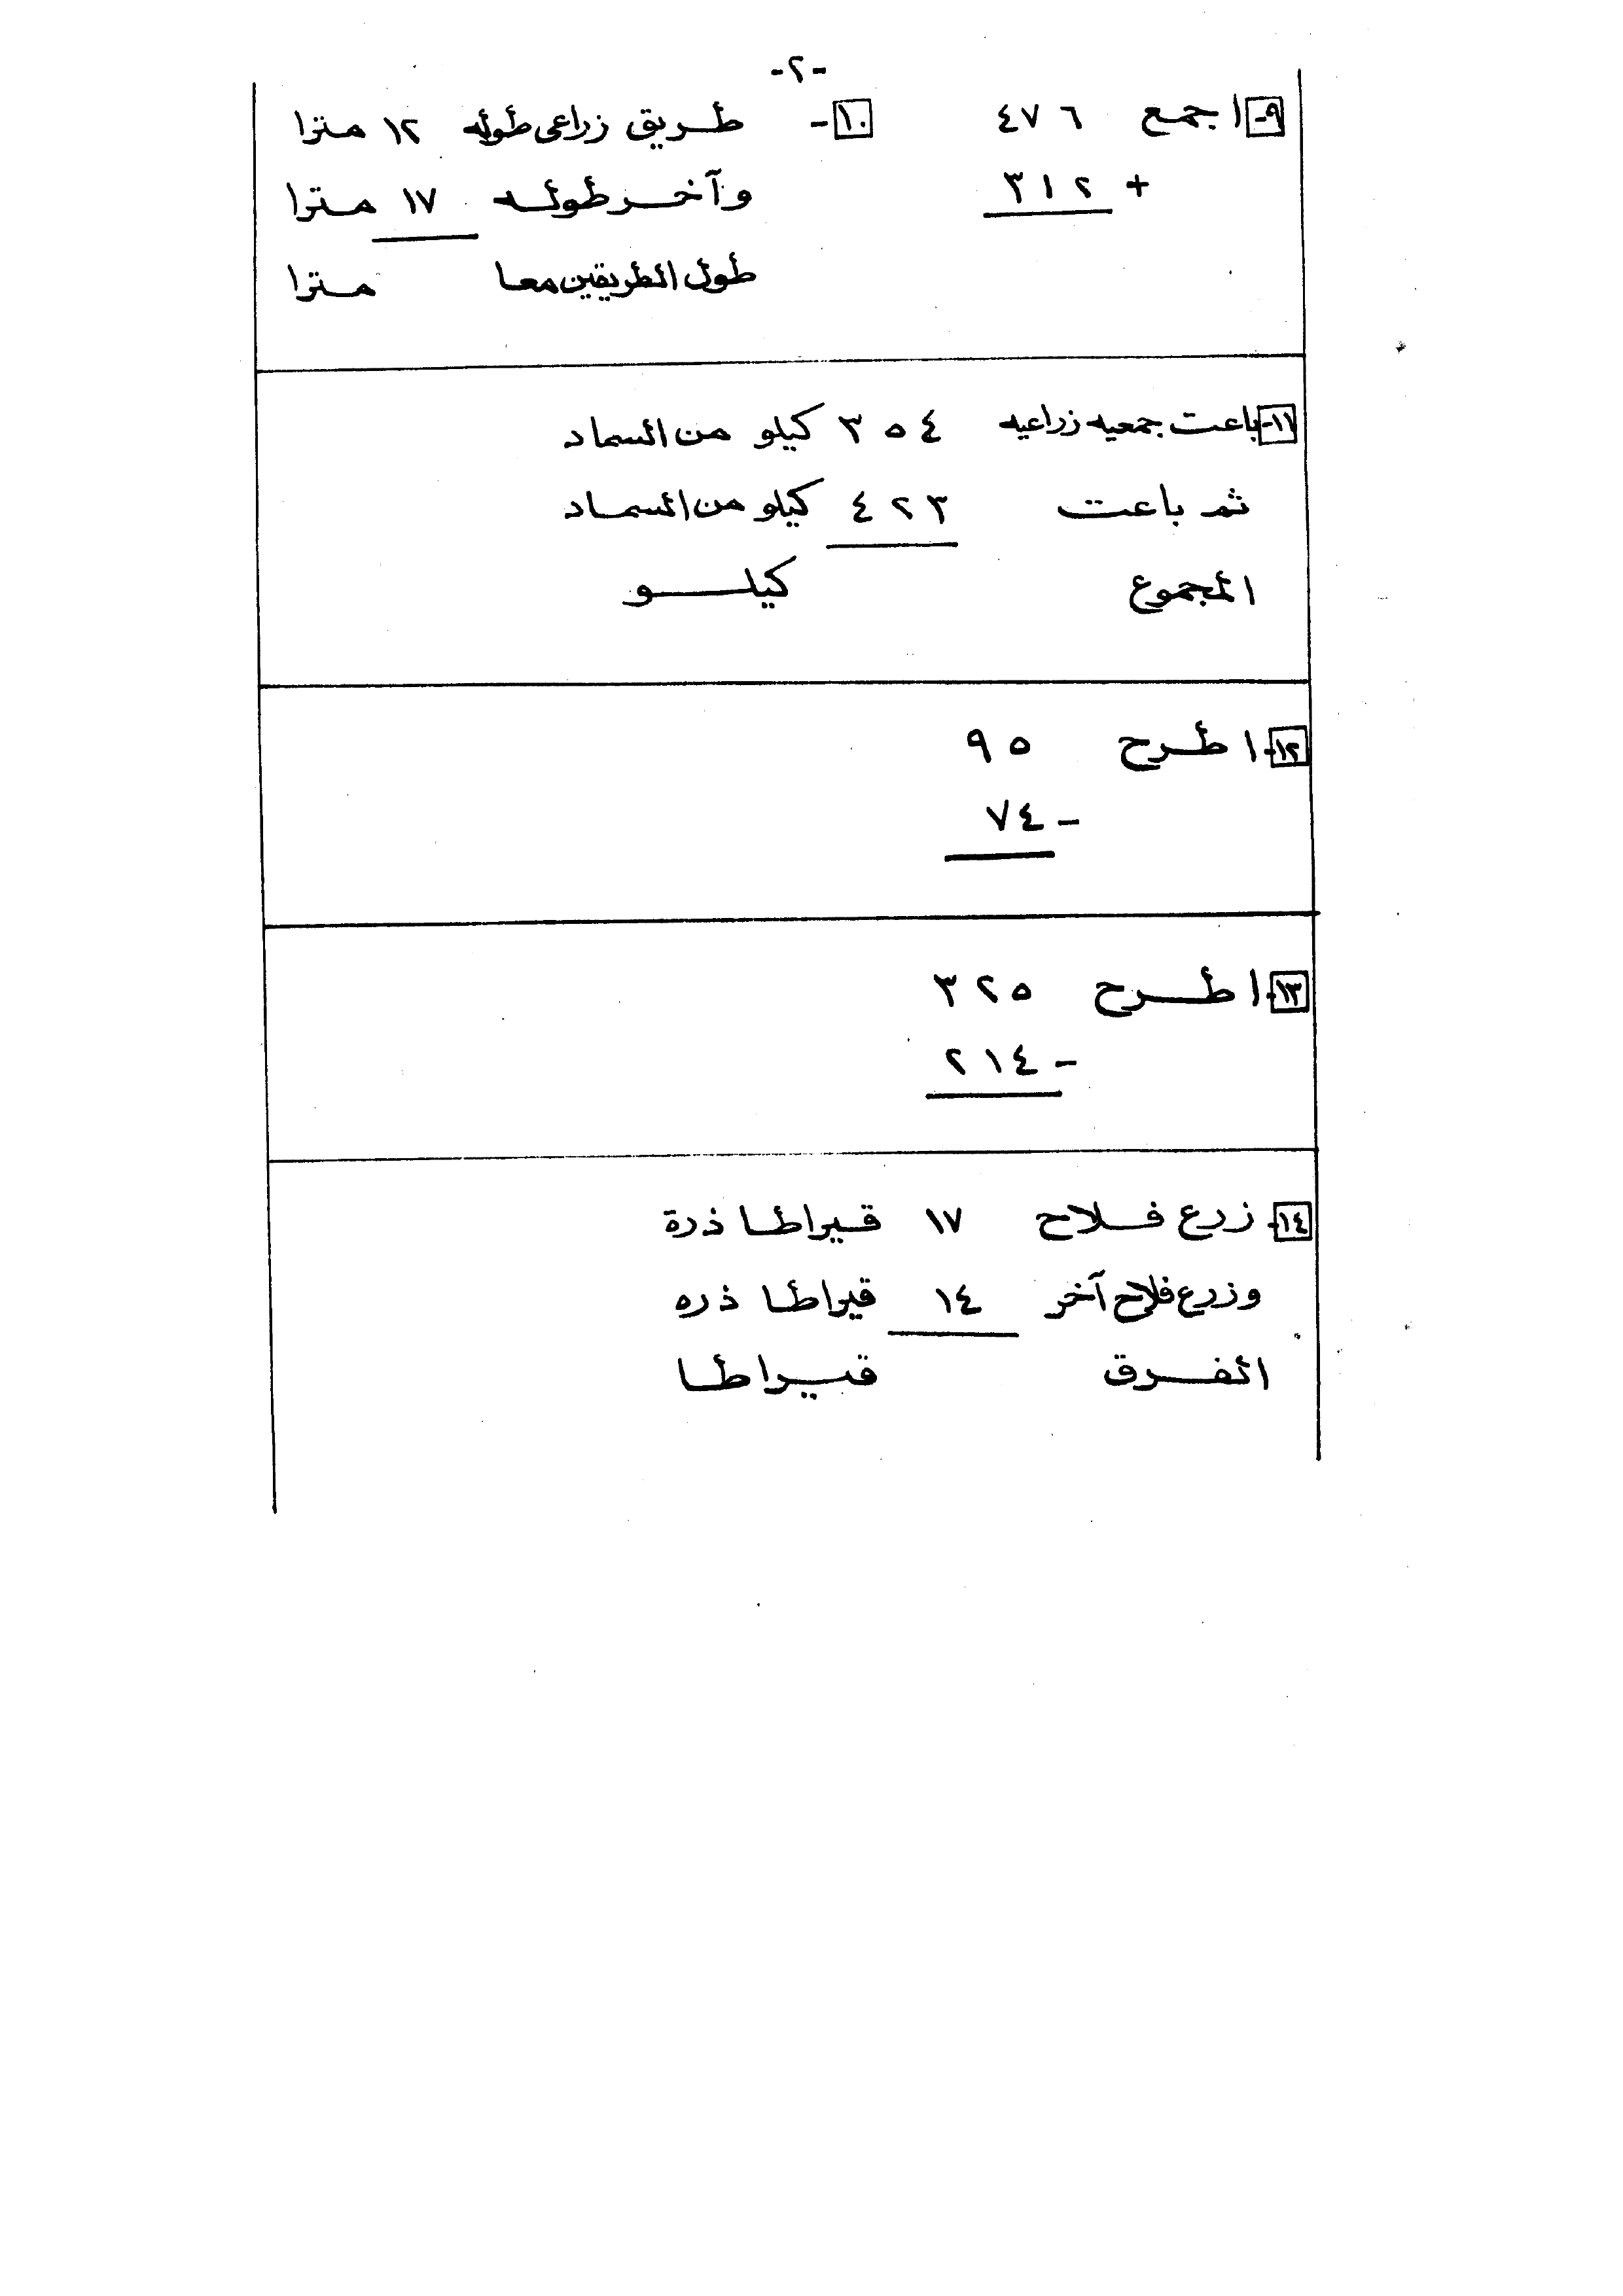 -٢-
٩- اجمع ٤٧٦
+ ٣١٢
١٠- طريق زراعى طوله ١٢ مترا
وآخر طوله ١٧ مترا
طول الطريقين معا مترا
١١- باعت جمعيه زراعيه ٣٥٤ كيلو من السماد
ثم باعت ٤٢٣ كيلو من السماد
المجموع كيلو
١٢- اطرح ٩٥
- ٧٤
١٣- اطرح ٣٢٥
- ٢١٤
١٤- زرع فلاح ١٧ قيراطا ذرة
وزرع فلاح آخر ١٤ قيراطا ذره
الفرق قيراطا